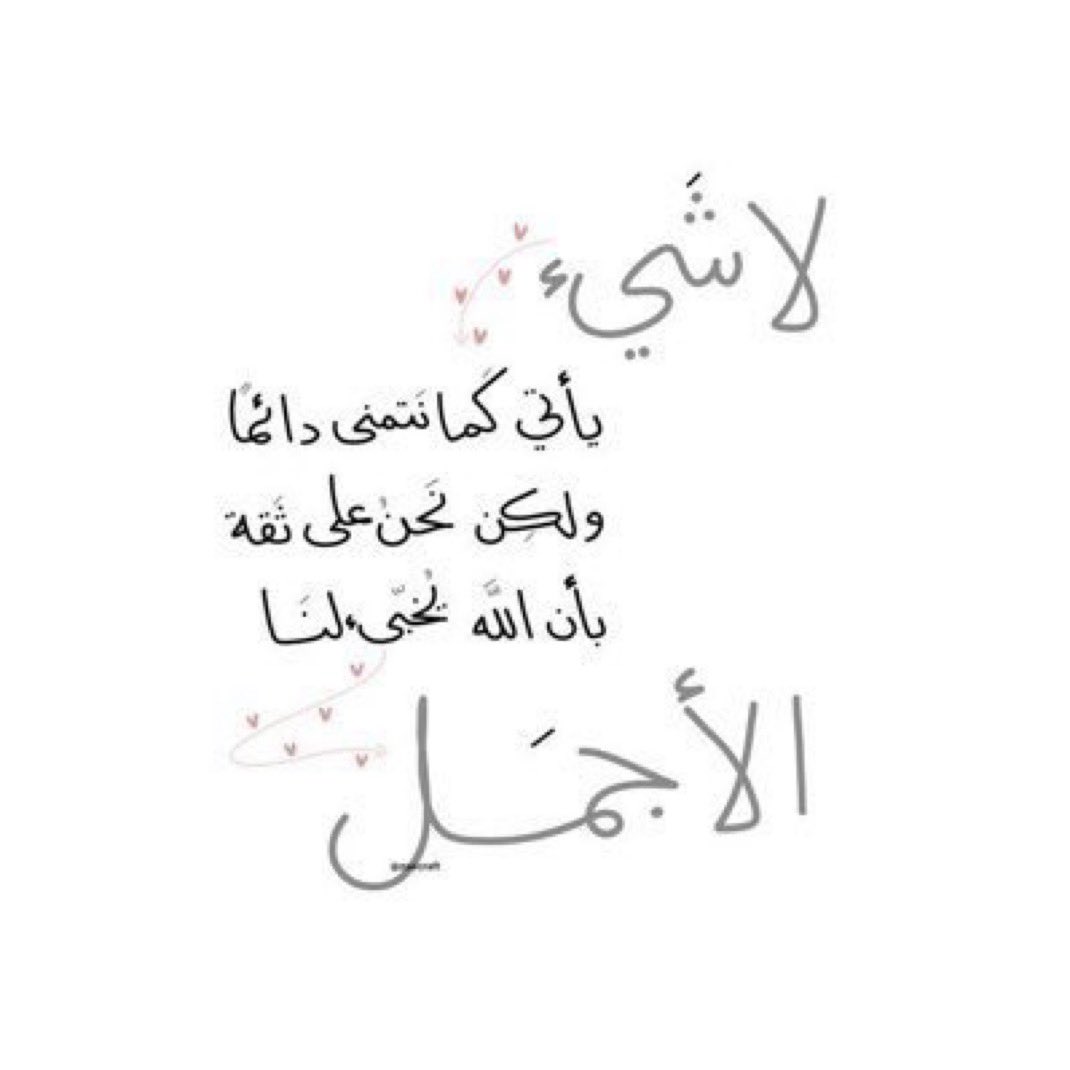 لا شَيء
يأتي كَما نَتمنى دائمًا
ولكِن نَحنُ على ثَقة
بأن اللَّه يُخبّىء لنَا
الأجمَل